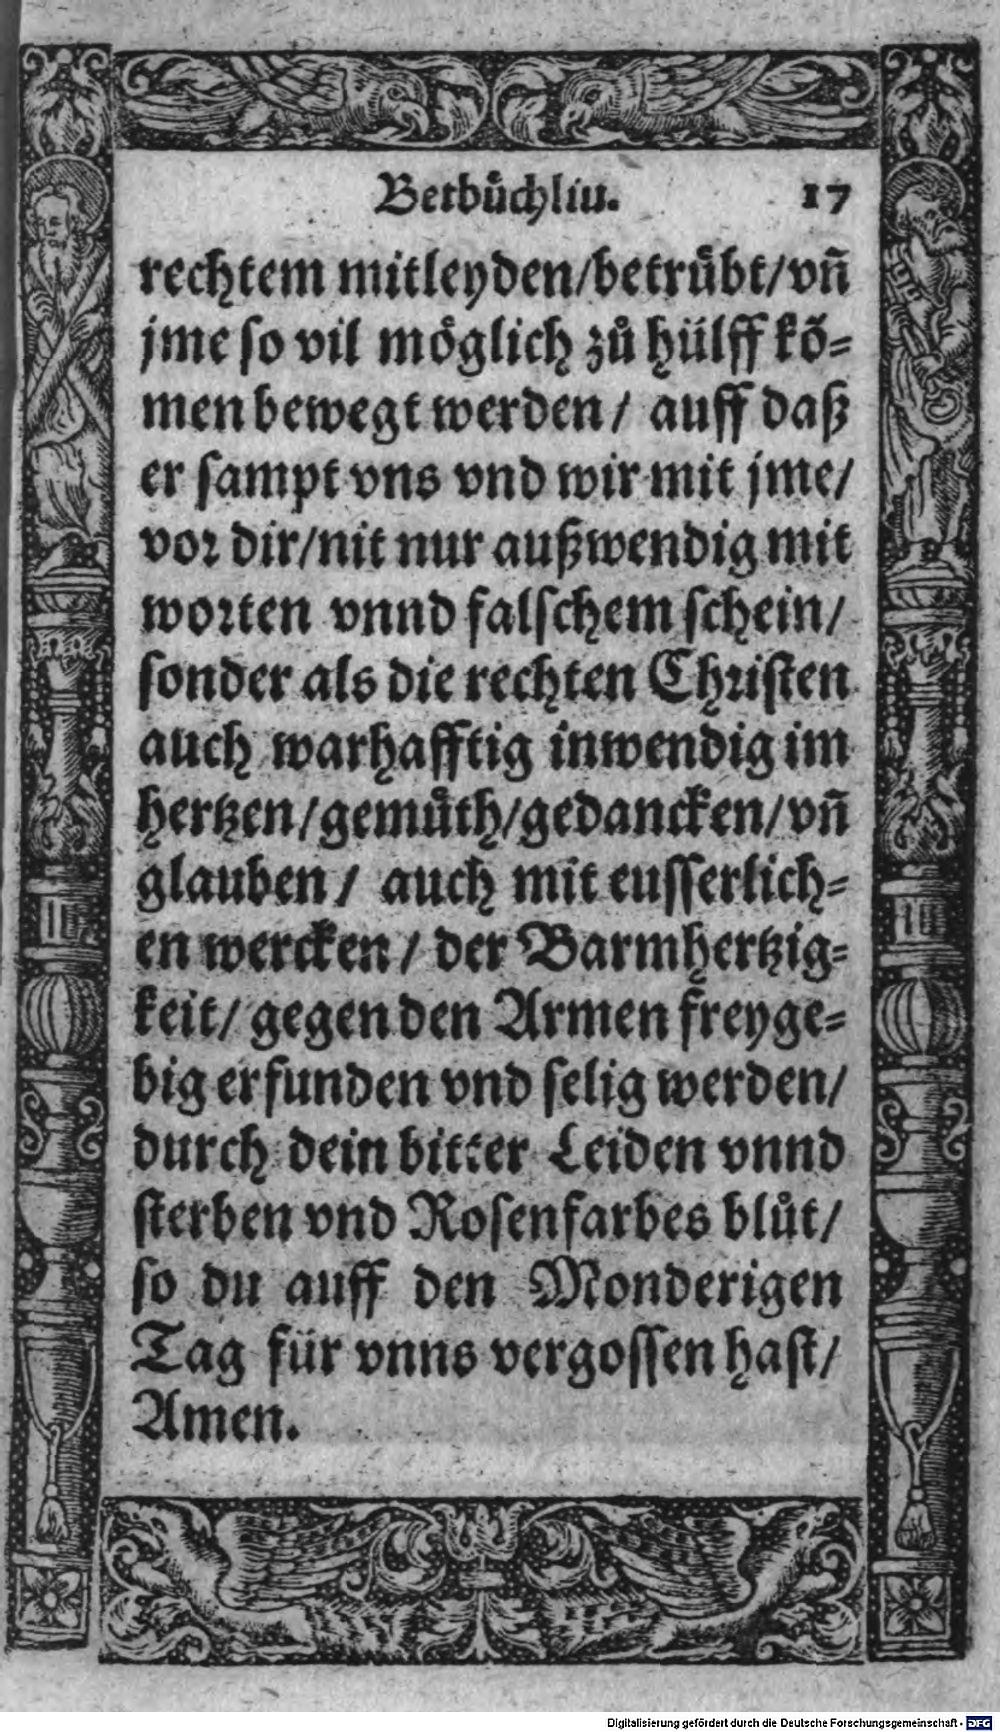 Betbuͤchlin. 17
rechtem mitleyden/betruͤbt/vñ
jme so vil moͤglich zuͦ huͤlff koͤ-
men bewegt werden/ auff daß
er sampt vns vnd wir mit jme/
vor dir/nit nur außwendig mit
worten vnnd falschem schein/
sonder als die rechten Christen
auch warhafftig inwendig im
hertzen/gemuͤth/gedancken/vñ
glauben/ auch mit eusserlich-
en wercken/ der Barmhertzig-
keit/ gegen den Armen freyge-
big erfunden vnd selig werden/
durch dein bitter Leiden vnnd
sterben vnd Rosenfarbes bluͦt/
so du auff den Monderigen
Tag für vnns vergossen hast/
Amen.
Digitalisierung gefördert durch die Deutsche Forschungsgemeinschaft - DFG